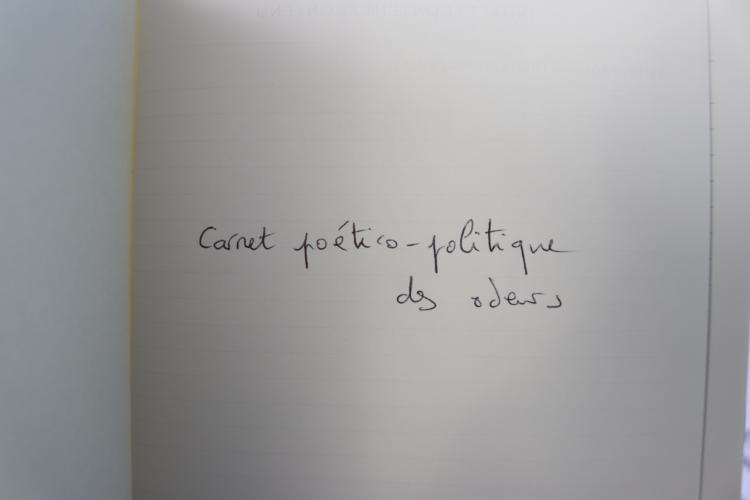 Carnet poético-politique
des odeurs